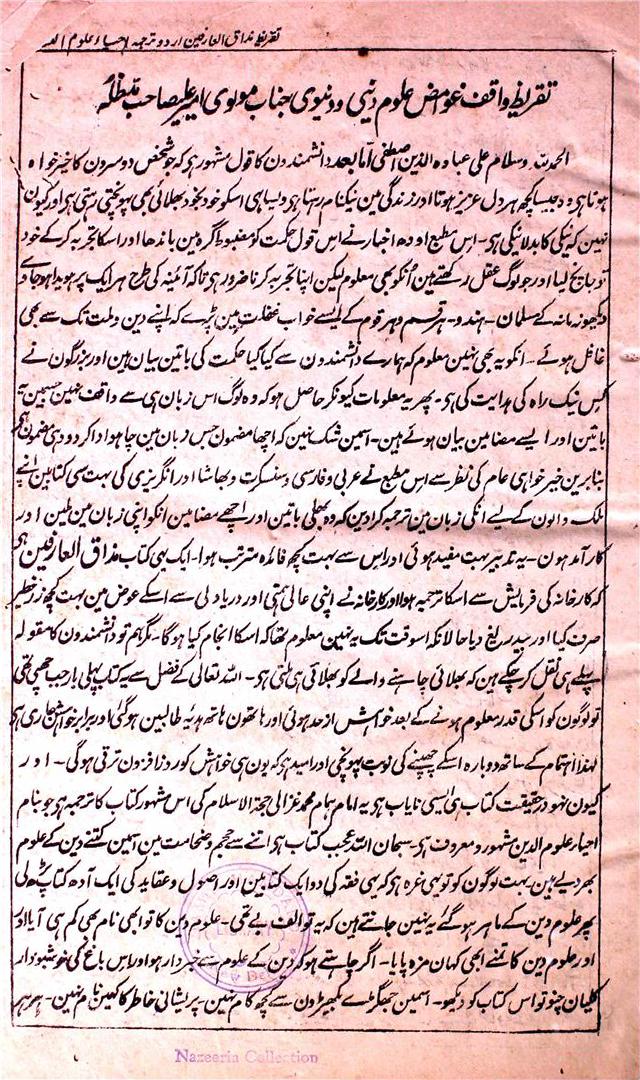 تقریظ مذاق العارفین اردو ترجمہ احیاء علوم الد
تقریظ واقف غوامض علوم دینی و دنیوی جناب مولوی امیر علیصاحب مدظلہ
الحمدللہ وسلام علی عبادہ الذین اصطفی امّا بعد دانشمندون کا قول مشہور ہی کہ جو شخص دوسرون کا خیر خواہ
ہوتا ہی وہ جیسا کچھ ہر دل عزیز ہوتا اور زندگی مین نیکنام رہتا ہی ویسا ہی اسکو خود بخود بھلائی بھی پہونچتی رہتی ہی اور کیون
نہین کہ نیکی کا بدلا نیکی ہی۔ اس مطبع اودھ اخبار نے اس قول حکمت کو مضبوط گرہ مین باندھا اور اسکا تجربہ کرکے خود
تو جانچ لیا اور جو لوگ عقل رکھتے ہین اُنکو بھی معلوم لیکن اپنا تجربہ کرنا ضرور ہی تاکہ آئینہ کی طرح ہر ایک پر ہویدا ہوجاوے
دیکھو زمانہ کے مسلمان۔ ہندو۔ ہر قسم و ہر قوم کے ایسے خواب غفلت مین پڑے کہ اپنے دین و ملت تک سے بھی
غافل ہوئے۔ انکو یہ بھی نہین معلوم کہ ہمارے دانشمندون سے کیا کیا حکمت کی باتین بیان ہین اور بزرگون نے
کس نیک راہ کی ہدایت کی ہی۔ پھر یہ معلومات کیونکر حاصل ہو کہ وہ لوگ اس زبان ہی سے واقف نہین جسمین یہ
باتین اور ایسے مضامین بیان ہوئے ہین۔ اسمین شک نہین کہ اچھا مضمون جس زبان مین چاہو ادا کردو وہی مضمون ہی
بنابرین خیر خواہی عام کی نظر سے اس مطبع نے عربی و فارسی و سنسکرت و بھاشا اور انگریزی کی بہت سی کتابین اپنے
ملک والون کے لیے انکی زبان مین ترجمہ کرا دین کہ وہ بھلی باتین اور اچھے مضامین انکو اپنی زبان مین ملین اور
کار آمد ہون۔ یہ تدبیر بہت مفید ہوئی اور اس سے بہت کچھ فائدہ مترتب ہوا۔ ایک یہی کتاب مذاق العارفین ہی
کہ کارخانہ کی فرمایش سے اسکا ترجمہ ہوا اور کارخانہ نے اپنی عالی ہمتی اور دریا دلی سے اسکے عوض مین بہت کچھ زر خطیر
صرف کیا اور بیدریغ دیا حالانکہ اسوقت تک یہ نہین معلوم تھا کہ اسکا انجام کیا ہوگا۔ مگر ہم تو دانشمندون کا مقولہ
پہلے ہی نقل کر چکے ہین کہ بھلائی چاہنے والے کو بھلائی ہی ملتی ہی۔ اللہ تعالی کے فضل سے یہ کتاب پہلی بار جب چھپی تھی
تو لوگون کو اسکی قدر معلوم ہونے کے بعد خواہش از حد ہوئی اور ہاتھون ہاتھ ہدیہ طالبین ہوگئی اور برابر خواہش جاری ہی
لہذا اہتمام کے ساتھ دوبارہ اسکے چھپنے کی نوبت پہونچی اور امید ہی کہ یون ہی خواہش کو روز افزون ترقی ہوگی۔ اور
کیون نہو در حقیقت کتاب ہی ایسی نایاب ہی یہ امام ہمام محمد غزالی حجۃ الاسلام کی اس مشہور کتاب کا ترجمہ ہی جو بنام
احیاء علوم الدین مشہور و معروف ہی۔ سبحان اللہ عجب کتاب ہی اتنے سے حجم و ضخامت مین اسمین کتنے دین کے علوم
بھر دیے ہین۔ بہت لوگون کو تو یہی غرہ ہی کہ یہی فقہ کی دو ایک کتابین اور اصول و عقاید کی ایک آدھ کتاب پڑھ لی
پھر علوم دین کے ماہر ہوگئے یہ نہین جانتے ہین کہ یہ تو الف بے تھی۔ علوم دین کا تو ابھی نام بھی کم ہی آیا اور
اور علوم دین کا تمنے ابھی کہان مزہ پایا۔ اگر چاہتے ہو کہ دین کے علوم سے خبردار ہو اور اس باغ کی خوشبودار
کلیان چنو تو اس کتاب کو دیکھو۔ اسمین جھگڑے بکھیڑون سے کچھ کام نہین۔ پریشانی خاطر کا کہین نام نہین۔ ہر ہر
Nazeeria Collection